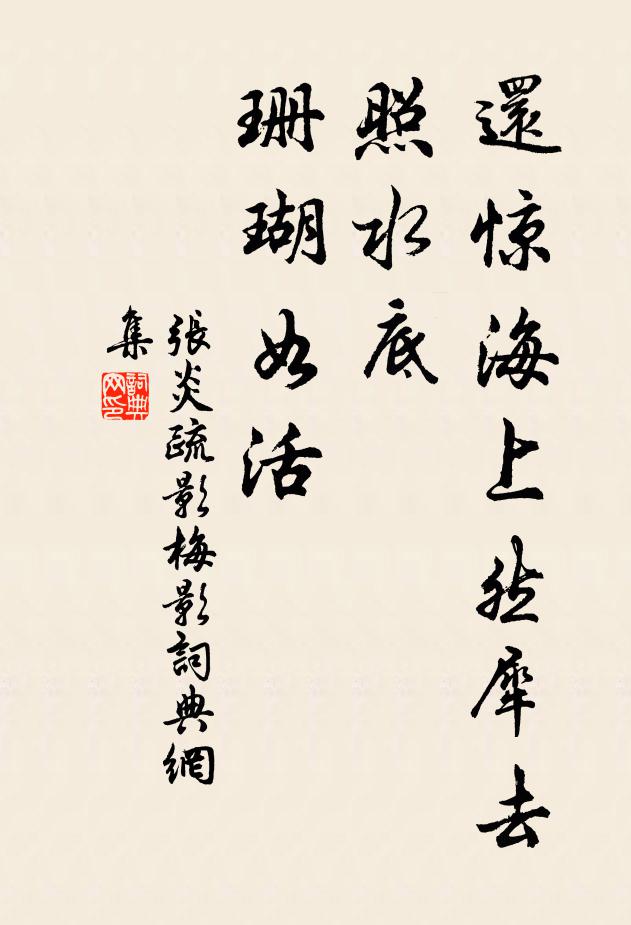 還惊海上然犀去
照水底
珊瑚如活
張炎疏影梅影詞典網
集
詞典
网印